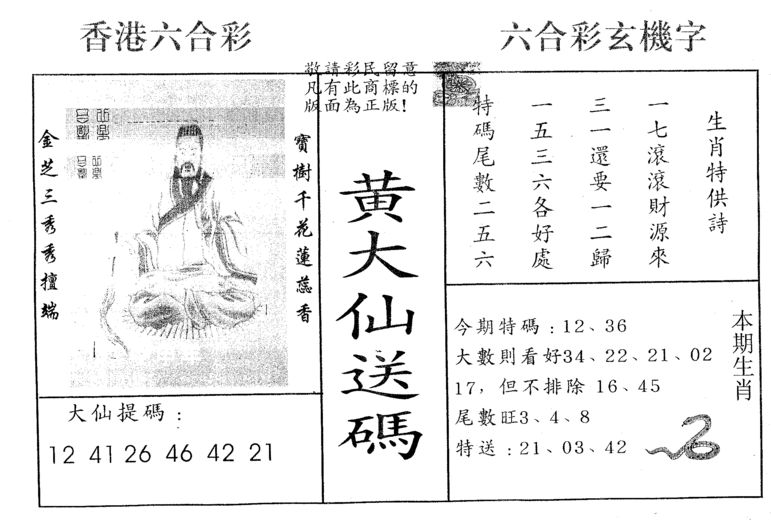 香港六合彩
六合彩玄機字
敬請彩民留意
凡有此商標的
版面為正版!
寶樹千花蓮蕊香
金芝三秀秀擅端
大仙提碼:
12 41 26 46 42 21
黃大仙送碼
生肖特供詩
一七滾滾財源來
三一還要一二歸
一五三六各好處
特碼尾數二五六
本期生肖
今期特碼:12、36
大數則看好34、22、21、02
17,但不排除 16、45
尾數旺3、4、8
特送:21、03、42